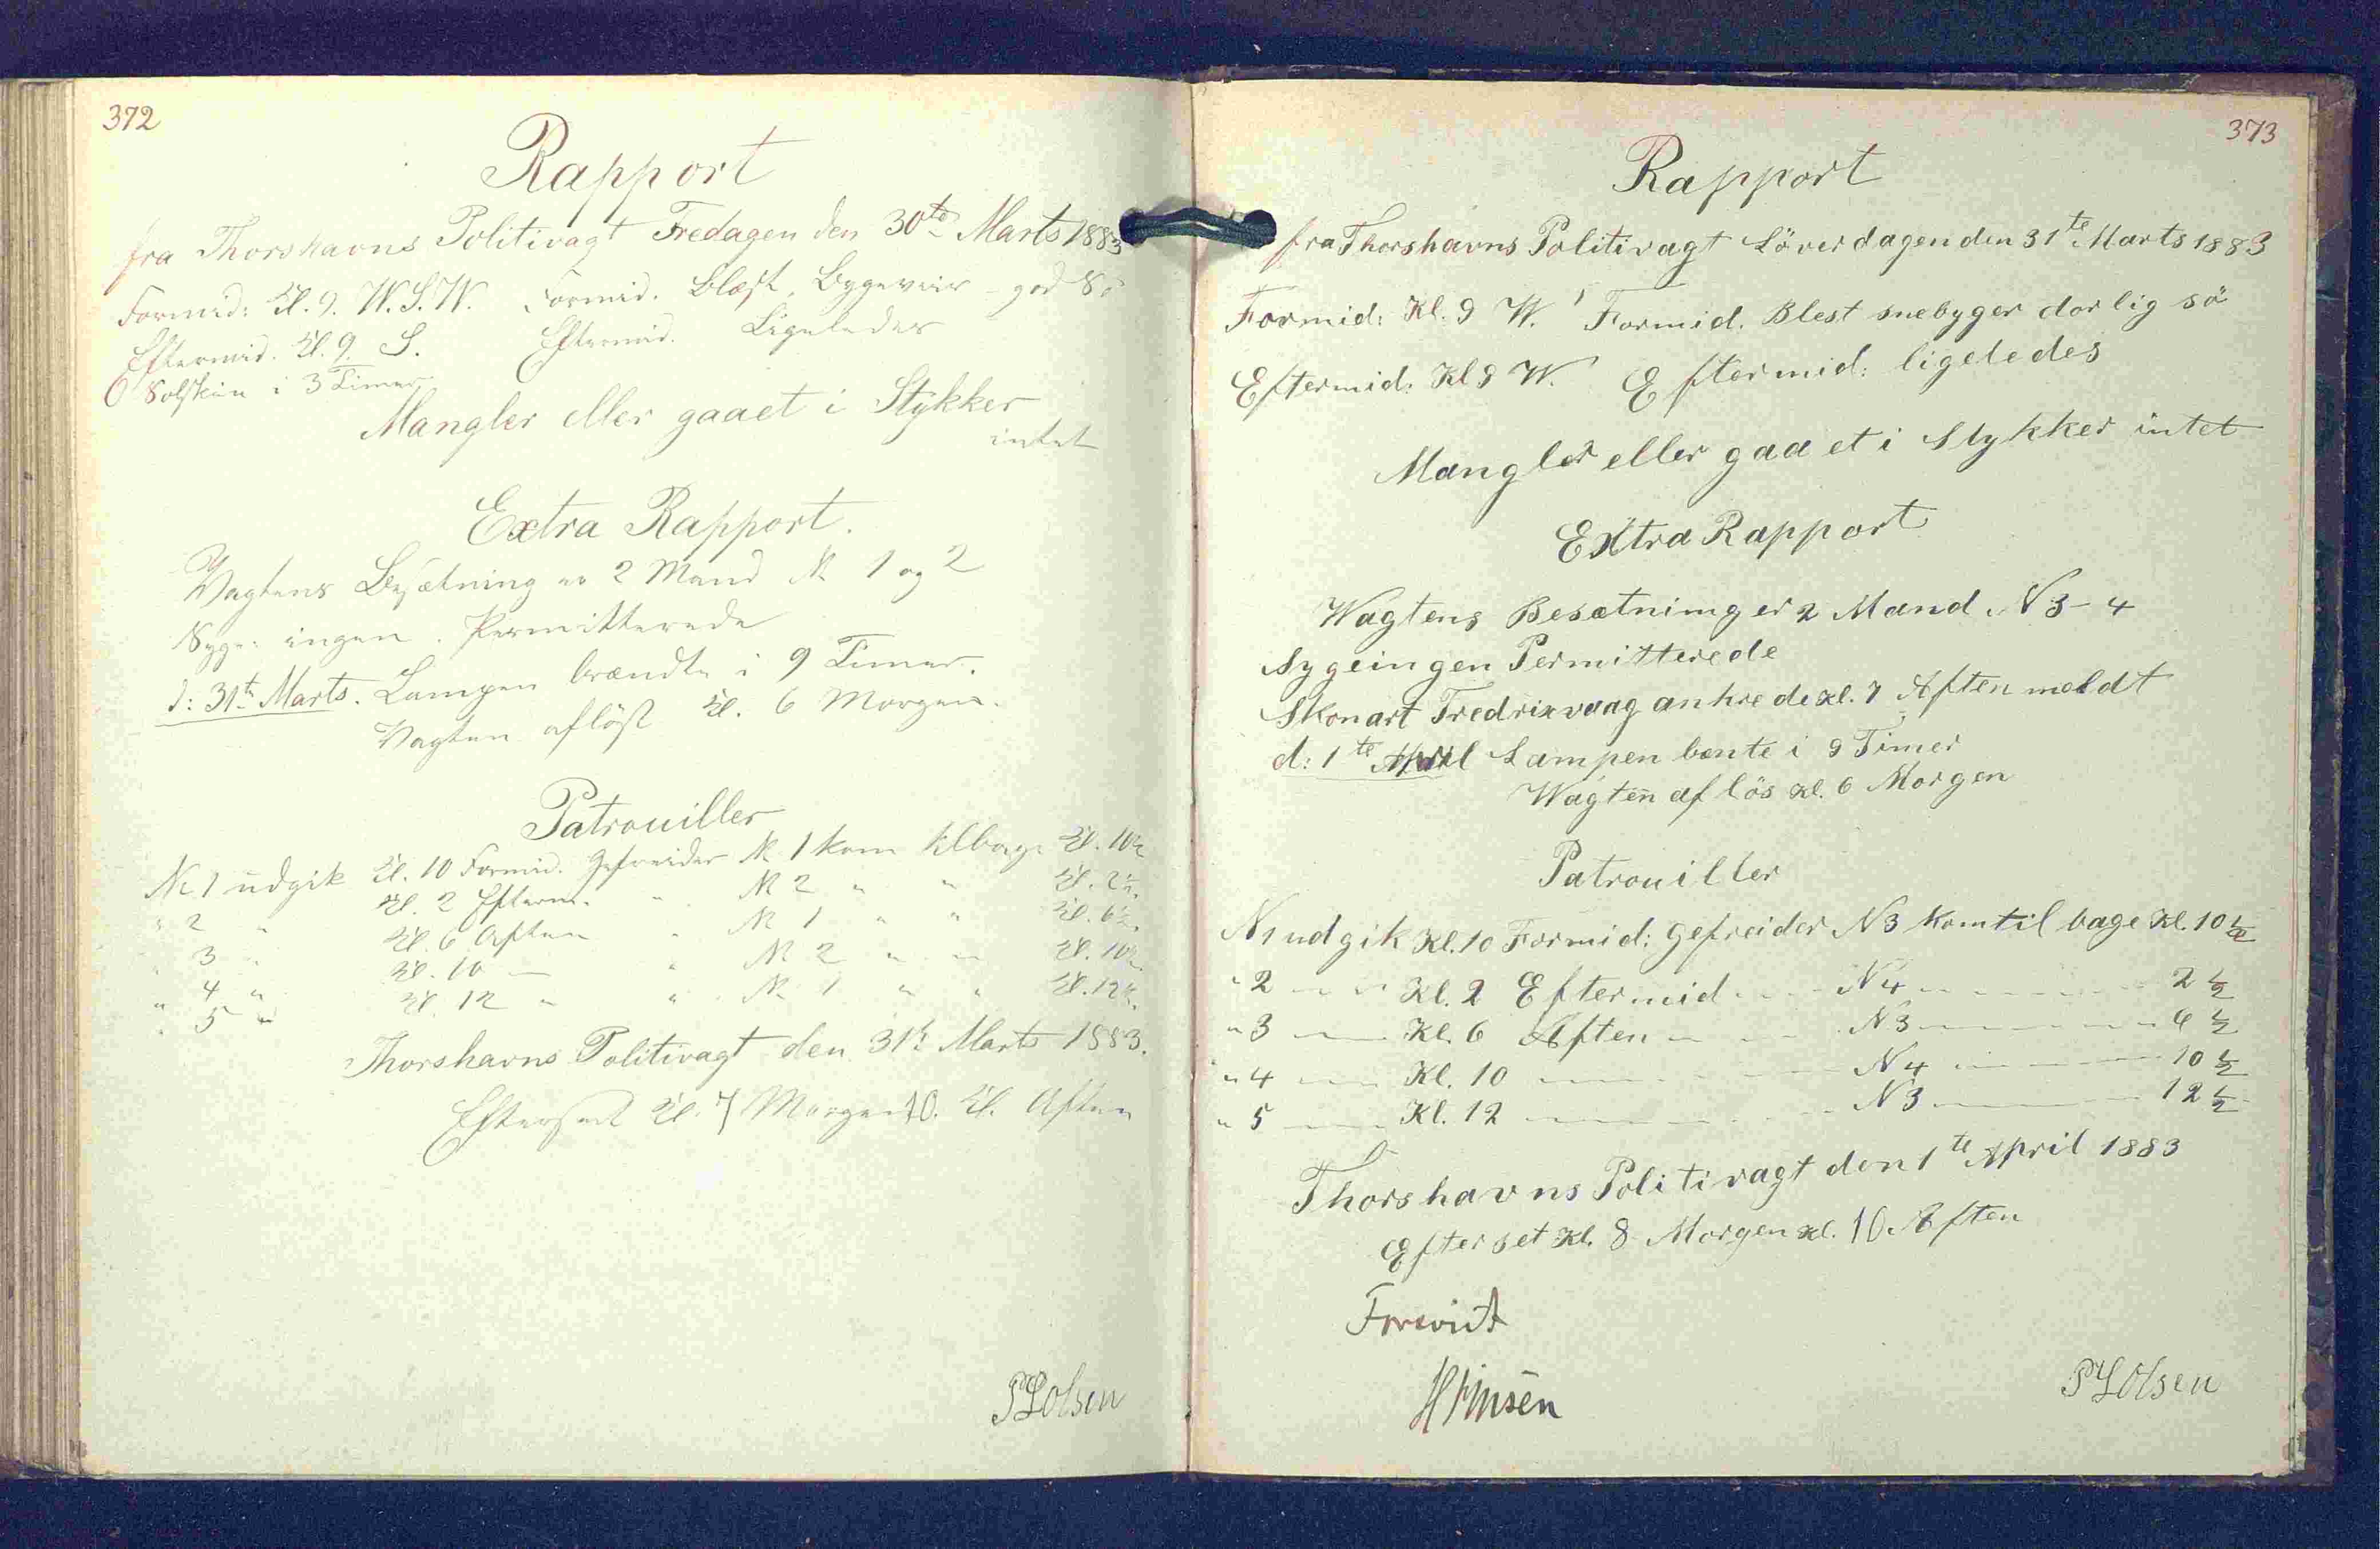 372
Rapport
fra Thorshavns Politivagt Fredagen den 30te Marts 1883
Formid: Kl. 9. W.S.W. Formid. Blæst, Bygeveir - god Sö
Eftermid. Kl. 9. S. Eftermid. Ligeledes
Solskin i 3 Timer
Mangler eller gaaet i Stykker
intet
Extra Rapport.
Vagtens Besætning er 2 Mand N 1 og 2
Syge: ingen. Permitterede
d: 31te Marts. Lampen brændte i 9 Timer.
Vagten aflöst Kl. 6 Morgen.
Patrouiller
N 1 udgik Kl. 10 Formid. Gefreider N 1 kom tilbage Kl. 10½
" 2 " Kl. 2 Efterm. " N 2 " " Kl. 2½
" 3 " Kl. 6 Aften " N 1 " " Kl. 6½
" 4 " Kl. 10 — " N 2 " " Kl. 10½
" 5 " Kl. 12 " " N 1 " " Kl. 12½
Thorshavns Politivagt den 31te Marts 1883.
Efterset Kl. 7 Morgen 10. Kl. Aften
PLOlsen
373
Rapport
fra Thorshavns Politivagt Löverdagen den 31te Marts 1883
Formid: Kl. 9 W. Formid. Blest snebyger dorlig sö
Eftermid: Kl 9 W. Eftermid: ligeledes
Mangler eller gaaet i Stykker intet
Extra Rapport
Wagtens Besætnimg er 2 Mand N 3 - 4
Syge ingen Permitterede
Skonart Fredrixvaag ankrede Kl. 7 Aften meldt
d: 1te April Lampen bænte i 9 Timer
Wagten aflös Kl. 6 Morgen
Patrouiller
N 1 udgik Kl. 10 Formid: gefreider N 3 kom til bage Kl. 10 ½
" 2 — Kl. 2 Eftermid — N 4 — 2 ½
" 3 — Kl. 6 Aften — N 3 — 6 ½
" 4 — Kl. 10 — N 4 — 10 ½
" 5 — Kl. 12 — N 3 — 12 ½
Thorshavns Politivagt den 1te April 1883
Efterset Kl. 8 Morgen Kl. 10 Aften
Forevist
PLOlsen